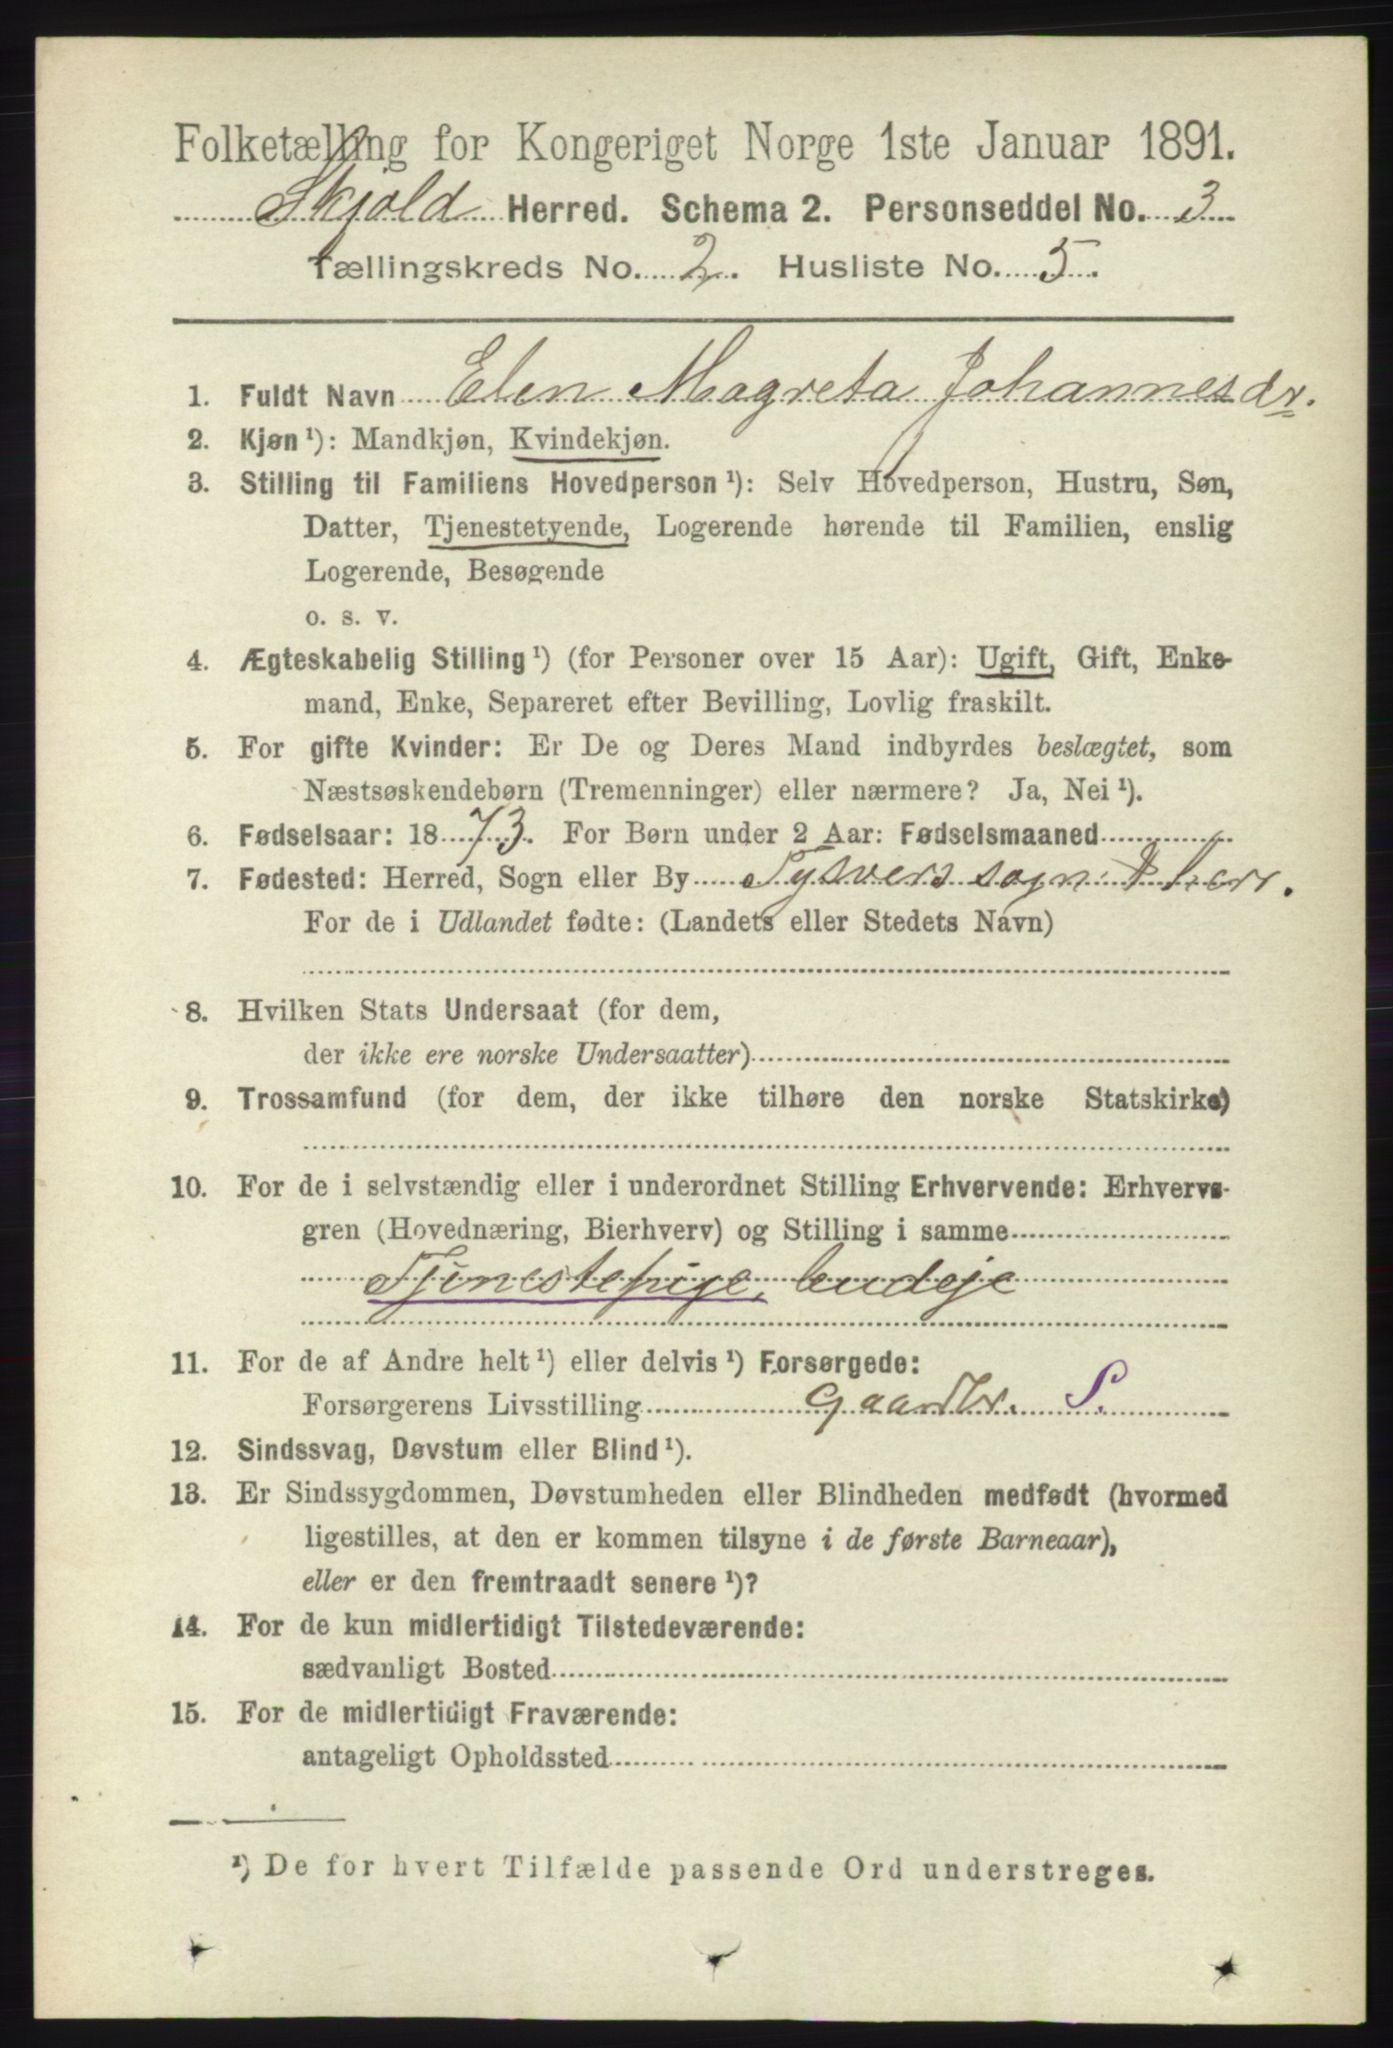 Folketælling for Kongeriget Norge 1ste Januar 1891.
Skjold Herred. Schema 2. Personseddel No. 3
Tællingskreds No. 2. Husliste No. 5.
1. Fuldt Navn Elen Magreta Johannesdr.
2. Kjøn ¹): Mandkjøn, Kvindekjøn.
3. Stilling til Familiens Hovedperson ¹): Selv Hovedperson, Hustru, Søn,
Datter, Tjenestetyende, Logerende hørende til Familien, enslig
Logerende, Besøgende
o. s. v.
4. Ægteskabelig Stilling ¹) (for Personer over 15 Aar): Ugift, Gift, Enke-
mand, Enke, Separeret efter Bevilling, Lovlig fraskilt.
5. For gifte Kvinder: Er De og Deres Mand indbyrdes beslægtet, som
Næstsøskendebørn (Tremenninger) eller nærmere? Ja, Nei ¹).
6. Fødselsaar: 1873. For Børn under 2 Aar: Fødselsmaaned
7. Fødested: Herred, Sogn eller By Tysvers sogn & herr.
For de i Udlandet fødte: (Landets eller Stedets Navn)
8. Hvilken Stats Undersaat (for dem,
der ikke ere norske Undersaatter)
9. Trossamfund (for dem, der ikke tilhøre den norske Statskirke)
10. For de i selvstændig eller i underordnet Stilling Erhvervende: Erhvervs-
gren (Hovednæring, Bierhverv) og Stilling i samme
Tjenestepige, budeje
11. For de af Andre helt ¹) eller delvis ¹) Forsørgede:
Forsørgerens Livsstilling Gaardbr. S.
12. Sindssvag, Døvstum eller Blind ¹).
13. Er Sindssygdommen, Døvstumheden eller Blindheden medfødt (hvormed
ligestilles, at den er kommen tilsyne i de første Barneaar),
eller er den fremtraadt senere ¹)?
14. For de kun midlertidigt Tilstedeværende:
sædvanligt Bosted
15. For de midlertidigt Fraværende:
antageligt Opholdssted
¹) De for hvert Tilfælde passende Ord understreges.